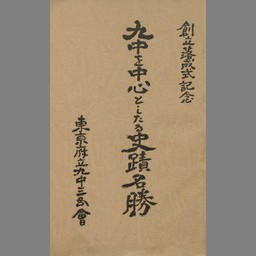 創立落成式記念
九中を中心としたる史蹟名勝
東京府立九中三玄會